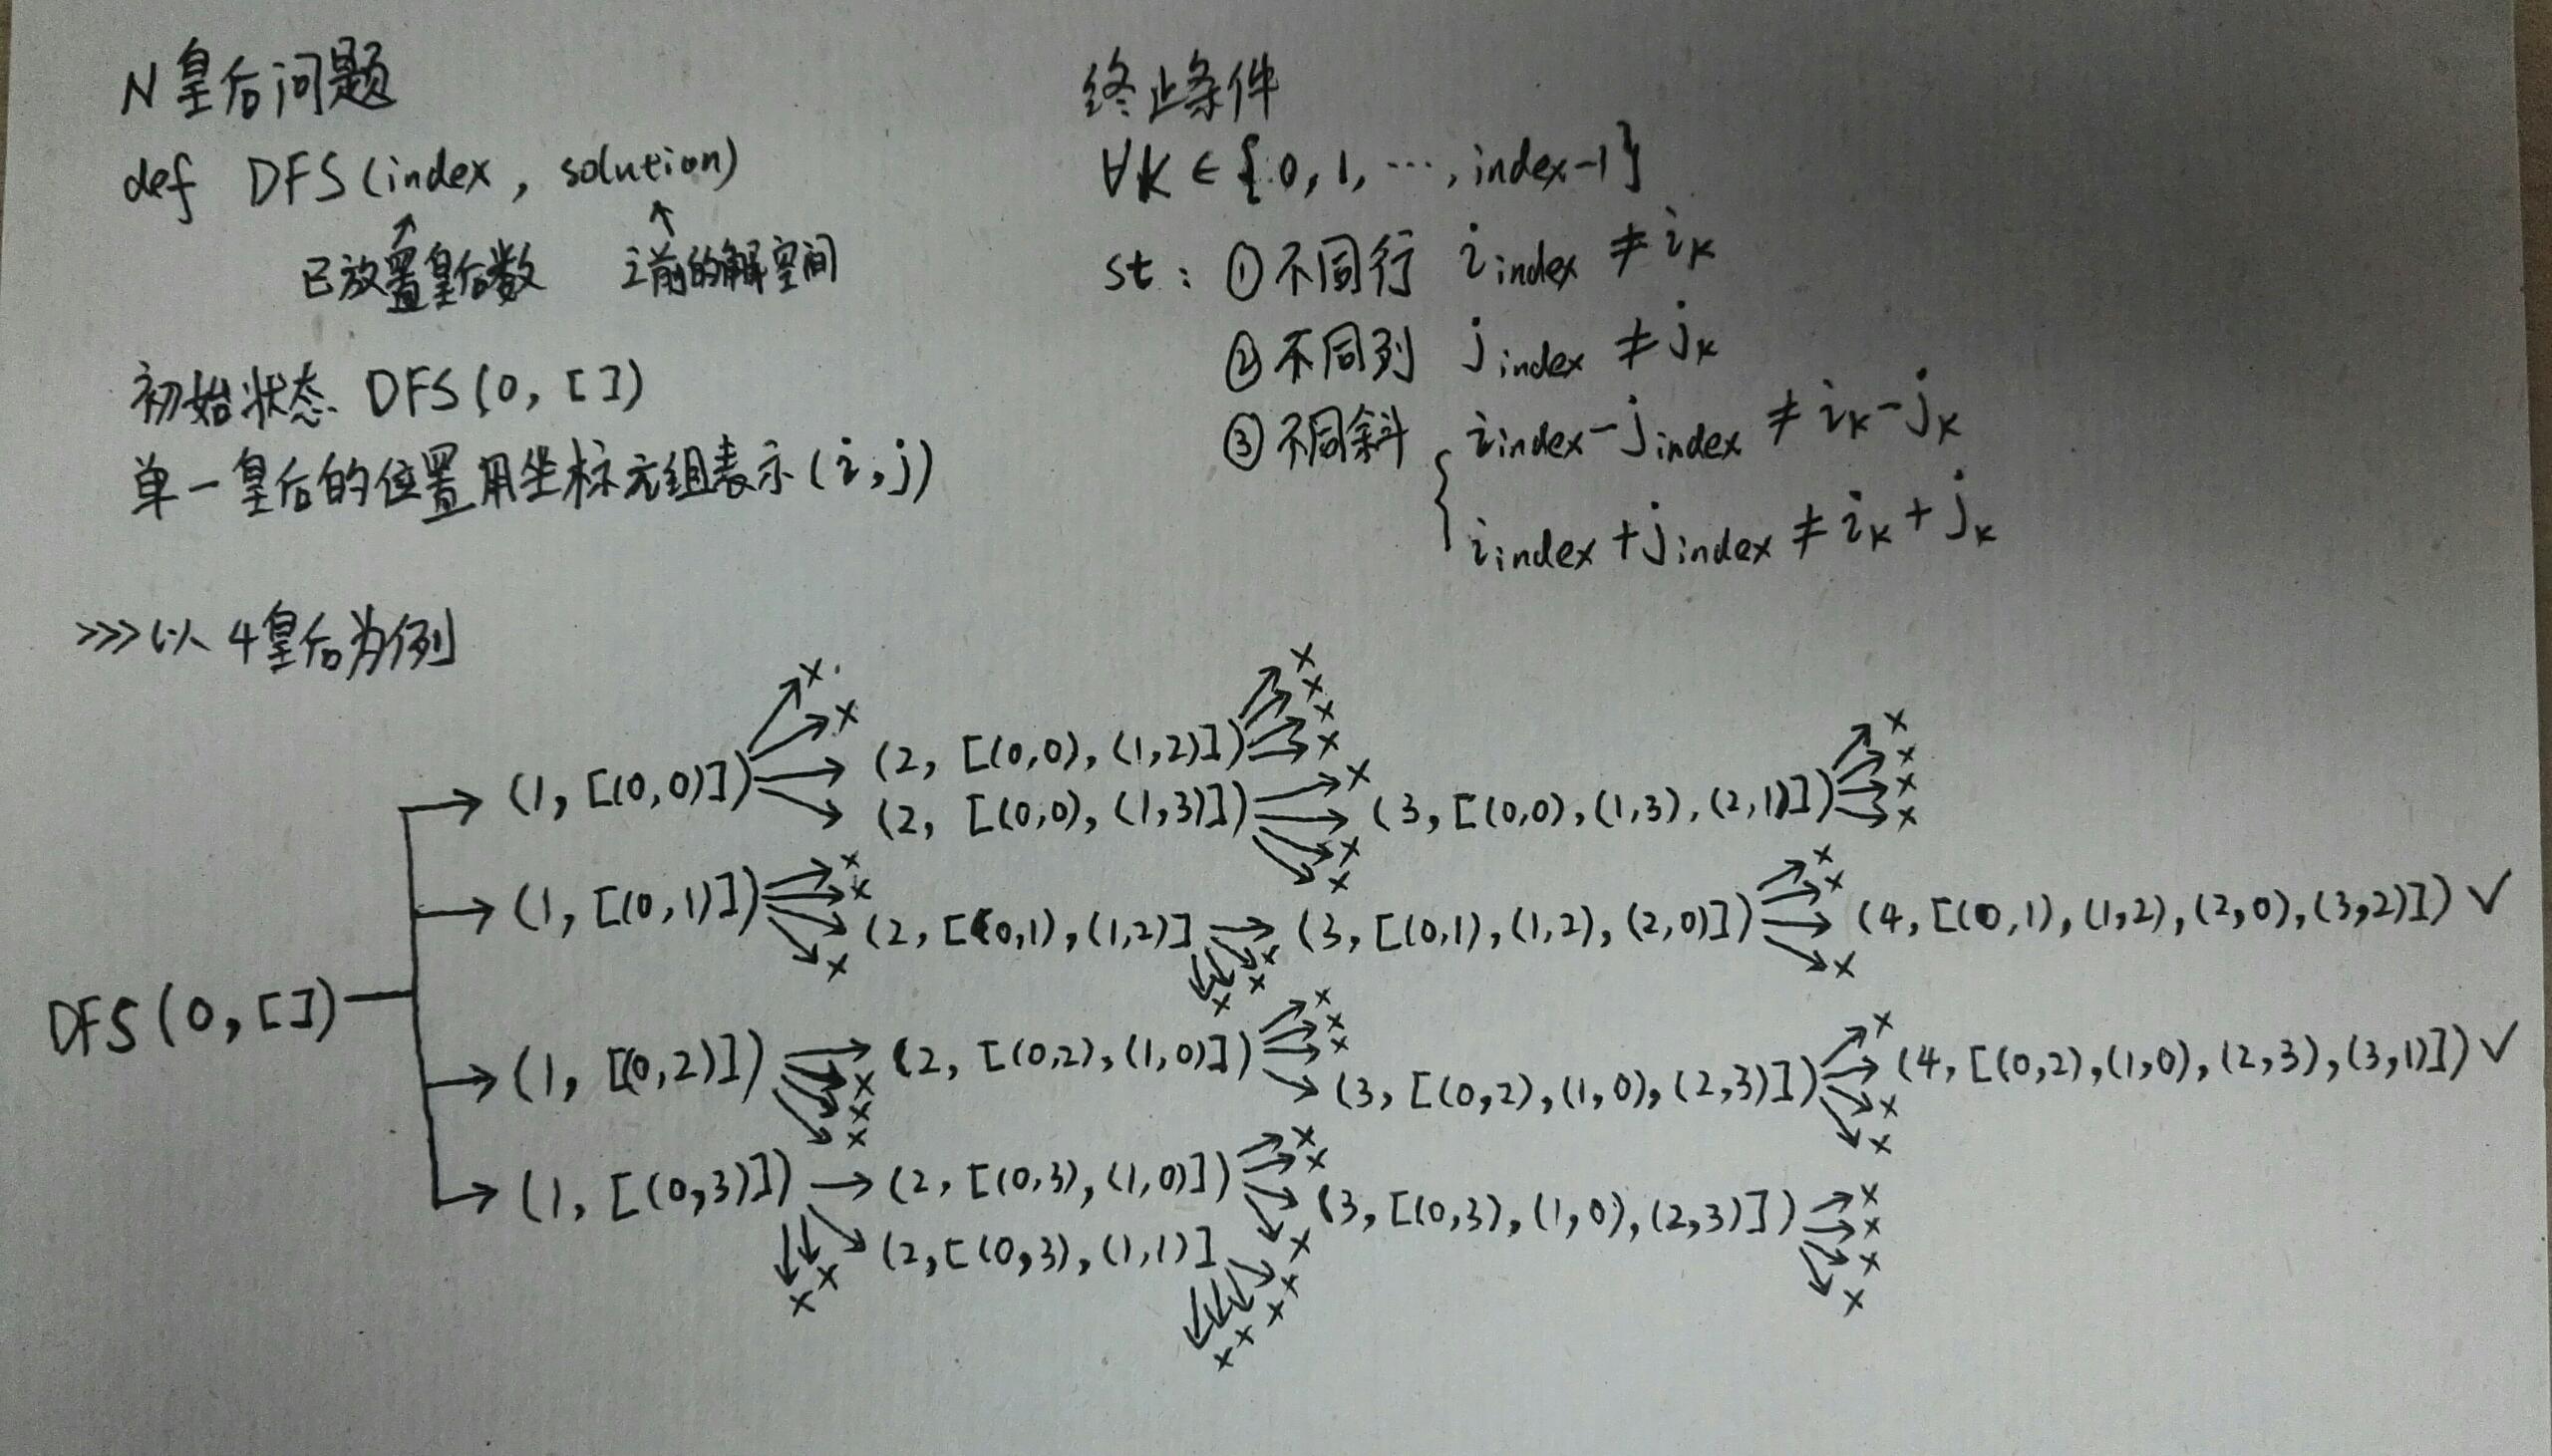 N皇后问题
def DFS(index, solution)
↑ ↑
已放置皇后数 之前的解空间
初始状态 DFS(0, [])
单一皇后的位置用坐标元组表示(i,j)
终止条件
∀k∈{0,1,…,index-1}
st: ①不同行 i_index ≠ i_k
②不同列 j_index ≠ j_k
③不同斜 { i_index-j_index ≠ i_k-j_k
i_index+j_index ≠ i_k+j_k
>>>以4皇后为例
DFS(0,[])
→ (1, [(0,0)])
× ×
(2, [(0,0), (1,2)])
× × × ×
(2, [(0,0), (1,3)])
× × ×
(3, [(0,0), (1,3), (2,1)])
× × × ×
→ (1, [(0,1)])
× × ×
(2, [(0,1), (1,2)]
× × ×
(3, [(0,1), (1,2), (2,0)])
× × ×
(4, [(0,1), (1,2), (2,0), (3,2)]) √
→ (1, [(0,2)])
× × ×
(2, [(0,2), (1,0)])
× × ×
(3, [(0,2), (1,0), (2,3)])
× × ×
(4, [(0,2), (1,0), (2,3), (3,1)]) √
→ (1, [(0,3)])
× ×
(2, [(0,3), (1,0)])
× × ×
(3, [(0,3), (1,0), (2,3)])
× × × ×
(2, [(0,3), (1,1)]
× × × ×